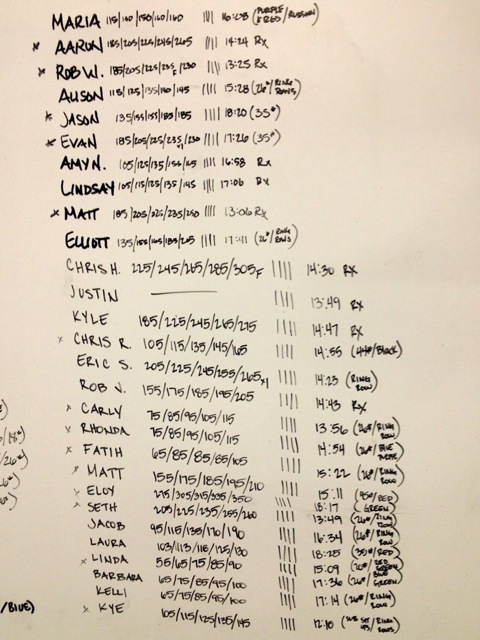 MARIA 115/140/150/160/160 |||| 16:08 (PURPLE & RED/RUSSIAN)
x AARON 185/205/225/245/265 |||| 14:24 RX
x ROB W. 185/205/225/235F/230 |||| 13:25 RX
ALISON 115/125/135/140/145 |||| 15:28 (26#/RING ROWS)
x JASON 135/155/155/185/185 |||| 18:20 (35#)
x EVAN 185/205/225/235/230 |||| 17:26 (35#)
AMY N. 105/125/135/155/165 |||| 16:58 RX
LINDSAY 105/115/125/135/145 |||| 17:06 RX
x MATT 185/205/225/235/250 |||| 13:06 RX
ELLIOTT 135/155/165/185/205 |||| 17:11 (26#/RING ROWS)
CHRIS H. 225/245/265/285/305F |||| 14:30 RX
JUSTIN —— |||| 13:49 RX
KYLE 185/225/245/265/275 |||| 14:47 RX
x CHRIS R. 105/115/135/145/165 |||| 14:55 (44#/BLACK)
ERIC S. 205/225/245/255/265x1 |||| 14:23 (RING ROW)
ROB V. 155/175/185/195/205 |||| 14:43 RX
x CARLY 75/85/95/105/115 |||| 13:56 (26#/RING ROW)
x RHONDA 75/85/95/105/115 |||| 14:54 (26#/BLUE PURPLE)
x FATIH 65/85/85/85/105 |||| 15:22 (26#/RING ROW)
x MATT 155/175/185/195/210 |||| 15:11 (45#/RED)
x ELOY 275/305/315/335/350 |||| 18:17 (GREEN)
x SETH 205/225/235/255/260 |||| 13:49 (26#/RING ROW)
JACOB 95/115/135/170/190 |||| 16:34 (26#/RING ROW)
LAURA 103/113/118/125/130 |||| 18:25 (35#/RED)
x LINDA 55/65/75/85/90 |||| 15:09 (26#/RED GREEN)
BARBARA 65/75/85/95/100 |||| 17:36 (26#/BLUE GREEN)
KELLI 65/75/85/95/100 |||| 17:14 (26#/RING ROW)
x KYE 105/115/125/135/145 |||| 12:10
/BLUE)